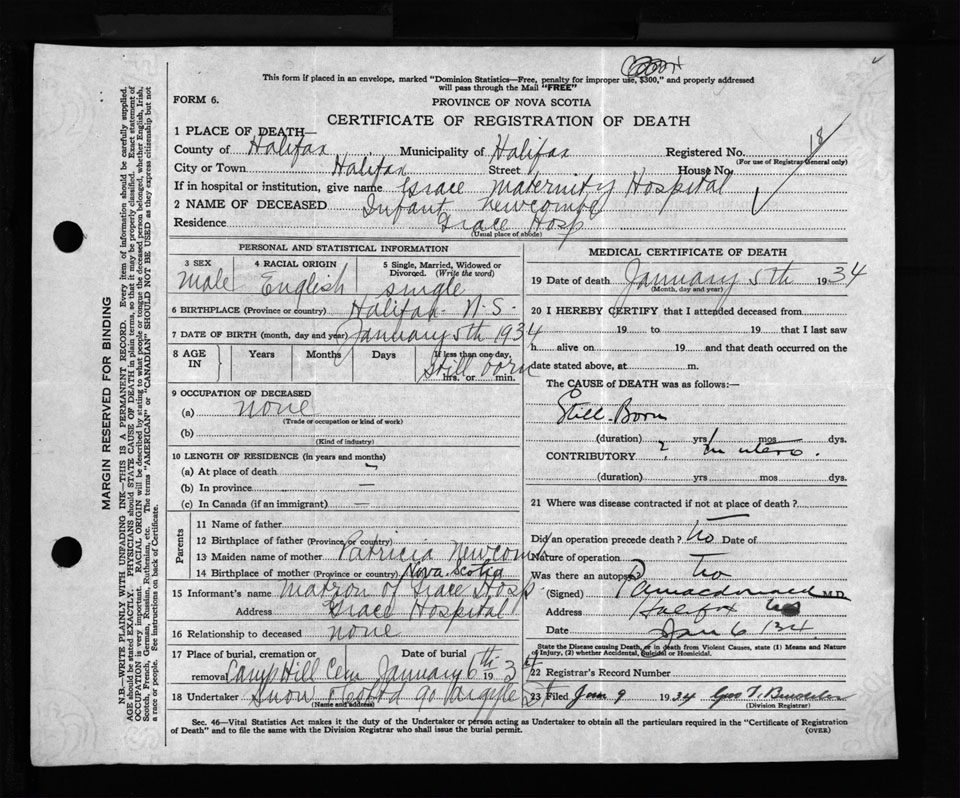 This form if placed in an envelope, marked "Dominion Statistics—Free, penalty for improper use, $300," and properly addressed
will pass through the Mail "FREE"
FORM 6.
PROVINCE OF NOVA SCOTIA
CERTIFICATE OF REGISTRATION OF DEATH
1 PLACE OF DEATH—
County of Halifax Municipality of Halifax Registered No.
(For use of Registrar General only)
City or Town Halifax Street House No.
If in hospital or institution, give name Grace Maternity Hospital
2 NAME OF DECEASED Infant Newcombe
Residence Grace Hosp
(Usual place of abode)
PERSONAL AND STATISTICAL INFORMATION
3 SEX 4 RACIAL ORIGIN 5 Single, Married, Widowed or
Divorced. (Write the word)
Male English single
6 BIRTHPLACE (Province or country) Halifax N.S.
7 DATE OF BIRTH (month, day and year) January 5th 1934
8 AGE IN Years Months Days If less than one day,
Still born
hrs. or min.
9 OCCUPATION OF DECEASED
(a) none
(Trade or occupation or kind of work)
(b)
(Kind of industry)
10 LENGTH OF RESIDENCE (in years and months)
(a) At place of death
(b) In province —
(c) In Canada (if an immigrant) —
Parents
11 Name of father
12 Birthplace of father (Province or country)
13 Maiden name of mother Patricia Newcombe
14 Birthplace of mother (Province or country) Nova Scotia
15 Informant's name Matron of Grace Hosp
Address Grace Hospital
16 Relationship to deceased none
17 Place of burial, cremation or removal Date of burial
Camp Hill Cem January 6th 1934
18 Undertaker Snow 90 Argyle St
(Name and address)
MEDICAL CERTIFICATE OF DEATH
19 Date of death January 5th 1934
(Month, day and year)
20 I HEREBY CERTIFY that I attended deceased from
19 to 19 that I last saw
h alive on 19 and that death occurred on the
date stated above, at m.
The CAUSE of DEATH was as follows:—
Still-Born
(duration) yrs mos dys.
CONTRIBUTORY ? In utero.
(duration) yrs mos dys.
21 Where was disease contracted if not at place of death?
Did an operation precede death? No Date of
Nature of operation
Was there an autopsy? No
(Signed) Macdonald M.D.
Address Halifax
Date Jan 6 /34
State the Disease causing Death, or in death from Violent Causes, state (1) Means and Nature
of Injury, (2) whether Accidental, Suicidal or Homicidal.
22 Registrar's Record Number
23 Filed Jan 9 1934
(Division Registrar)
Sec. 46—Vital Statistics Act makes it the duty of the Undertaker or person acting as Undertaker to obtain all the particulars required in the "Certificate of Registration
of Death" and to file the same with the Division Registrar who shall issue the burial permit. (OVER)
MARGIN RESERVED FOR BINDING
N.B.—WRITE PLAINLY WITH UNFADING INK—THIS IS A PERMANENT RECORD. Every item of information should be carefully supplied.
AGE should be stated EXACTLY. PHYSICIANS should STATE CAUSE OF DEATH in plain terms, so that it may be properly classified. Exact statement of
OCCUPATION is very important. RACIAL ORIGIN will be described by stating to what people or tongue the deceased person belonged, whether English, Irish,
Scotch, French, German, Russian, Ruthenian, etc. The terms "AMERICAN" or "CANADIAN" SHOULD NOT BE USED as they express citizenship but not
a race or people. See instructions on back of Certificate.